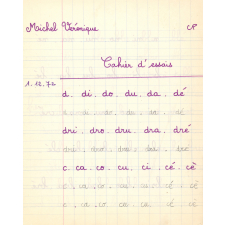 Maichel Véronique CP
Cahier d'essais
1.12.72
d . di . do . du . da . dé
dri . dro . dru . dra . dré
c . ca . co . cu . ci . cé . cè
c . ca . co . cu . ci . cé . cè